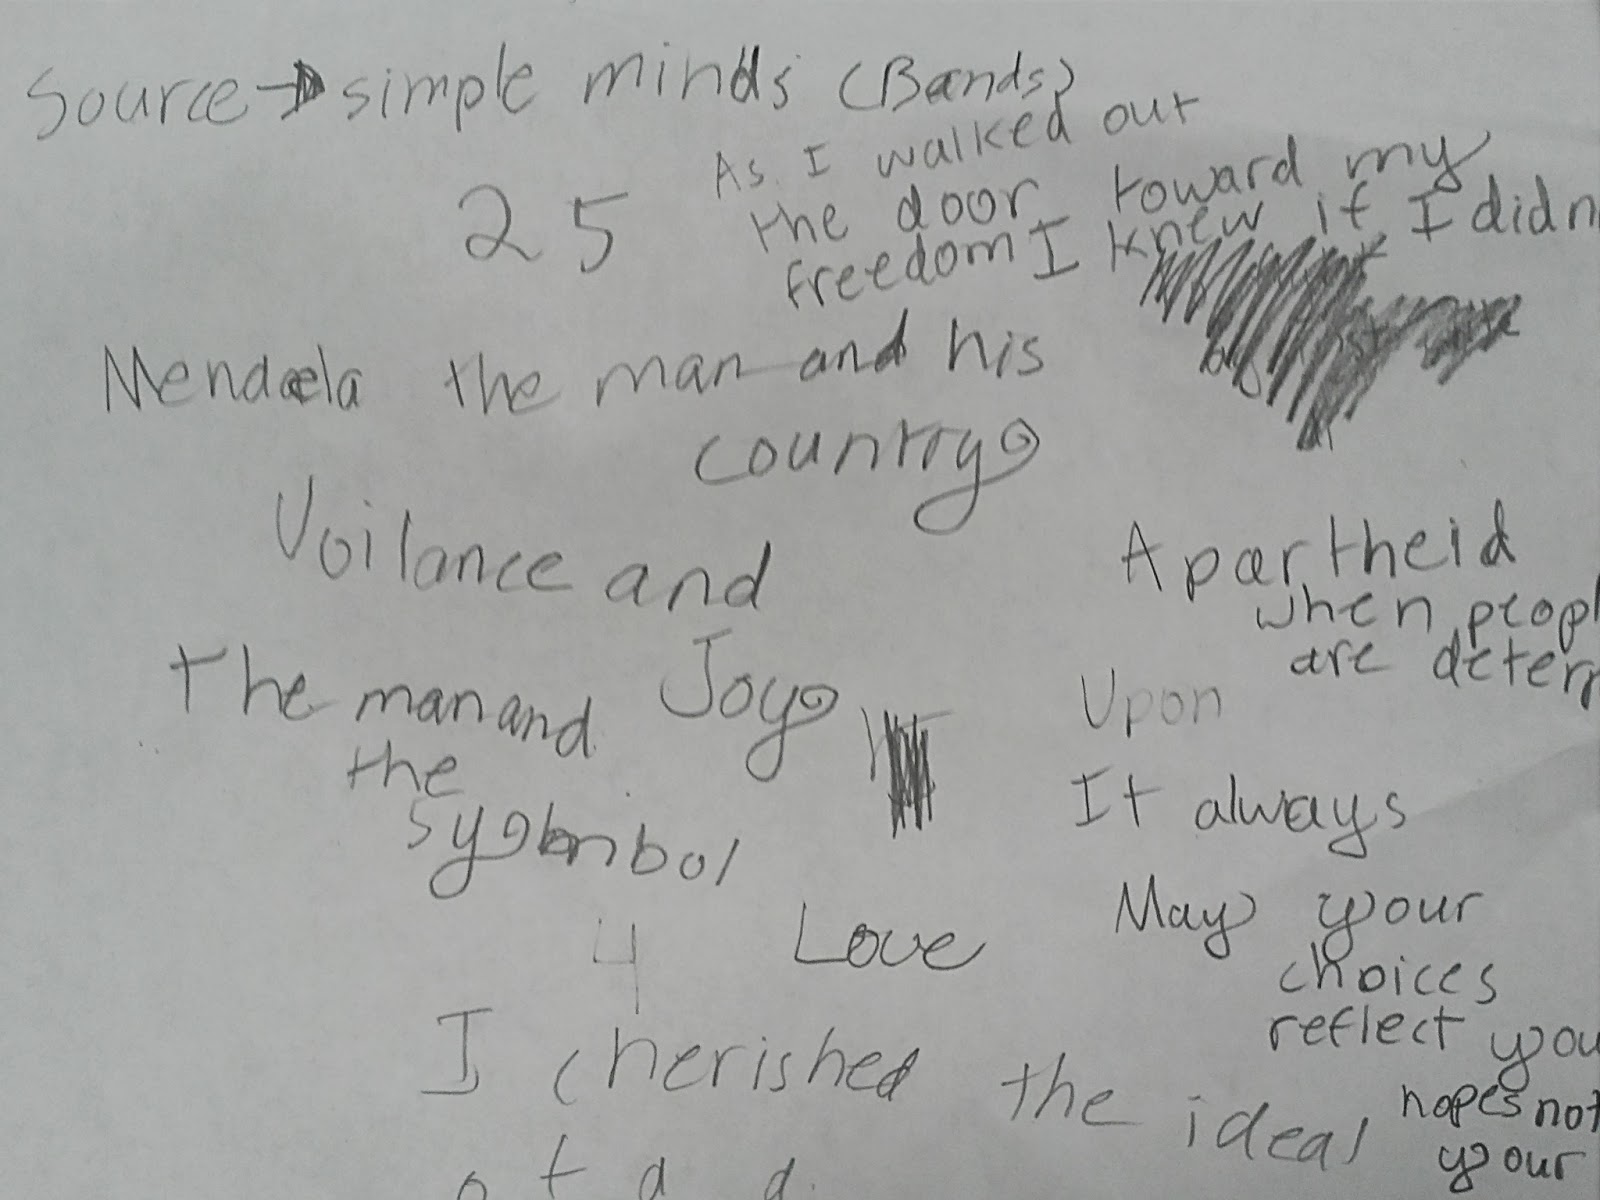 Source → simple minds (Bands)
25
As I walked out
the door toward my
freedom I knew if I didn
Mendaela the man and his
country.
Voilance and
Joy.
The man and
the
symbol
4 Love
Apartheid
when peopl
are deterr
Upon
It always
May your
choices
reflect you
hopes not
your
I cherished the ideal
of a